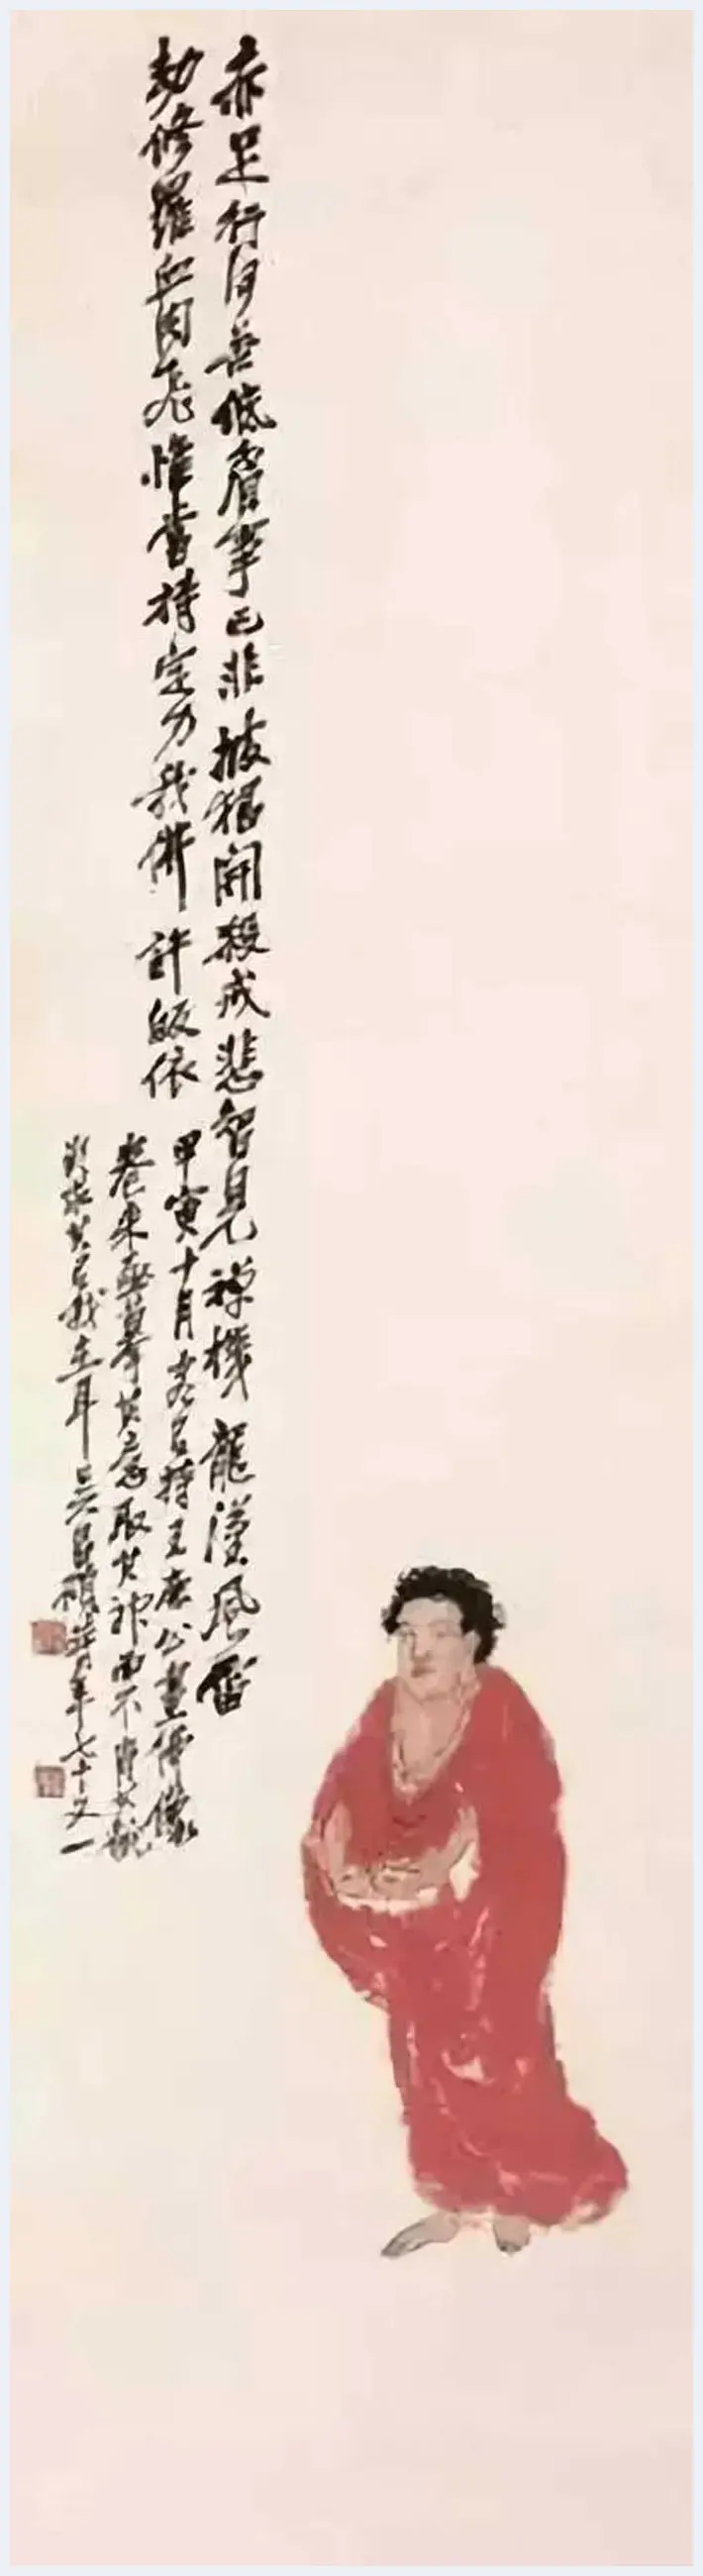 赤足行何苦低眉事已非披猖開殺戒悲智見禪機龍漢風雷
劫修羅血肉飛惟當持定力我佛許皈依
甲寅十月持王公畫佛像
卷來其意取其神而不
我耳吳昌碩時年七十又一